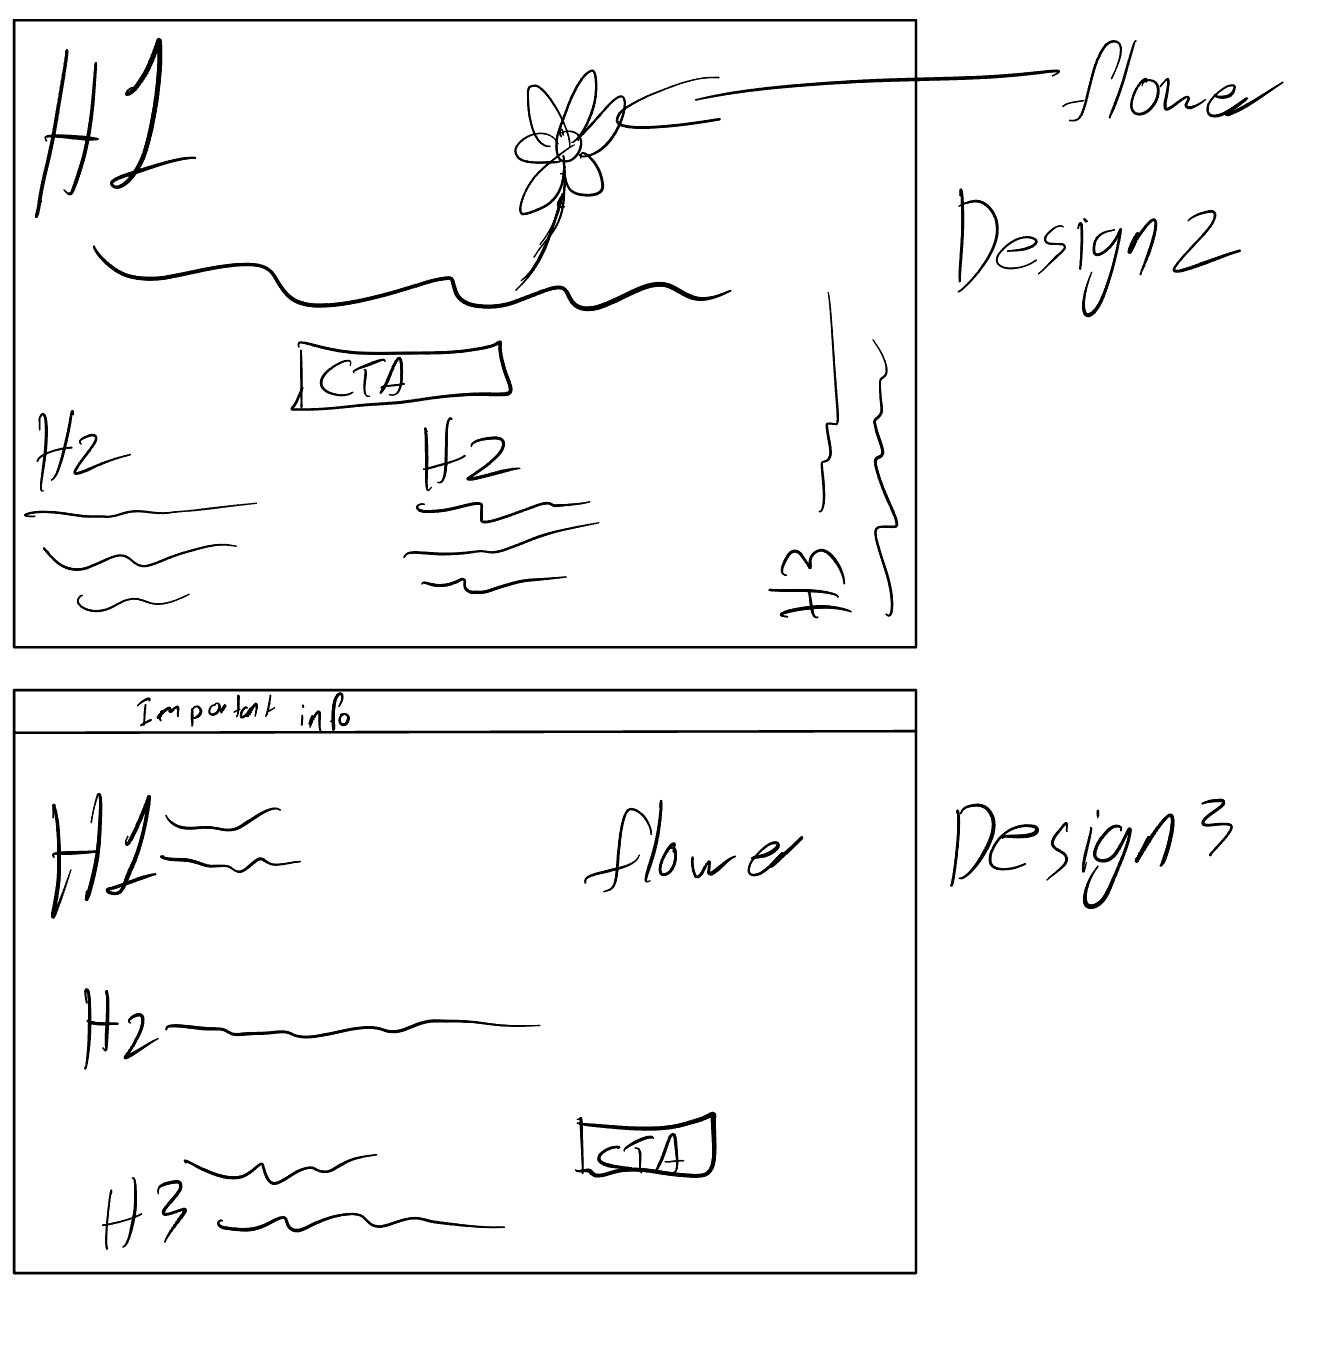 H1
flower
Design 2
CTA
H2
H2
H3
Important info
H1
flower
Design 3
H2
CTA
H3